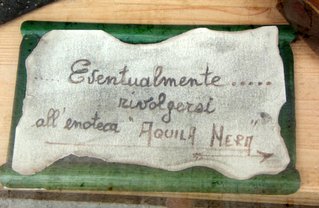 ..... Eventualmente.....
rivolgersi
all'enoteca "AQUILA NERA"